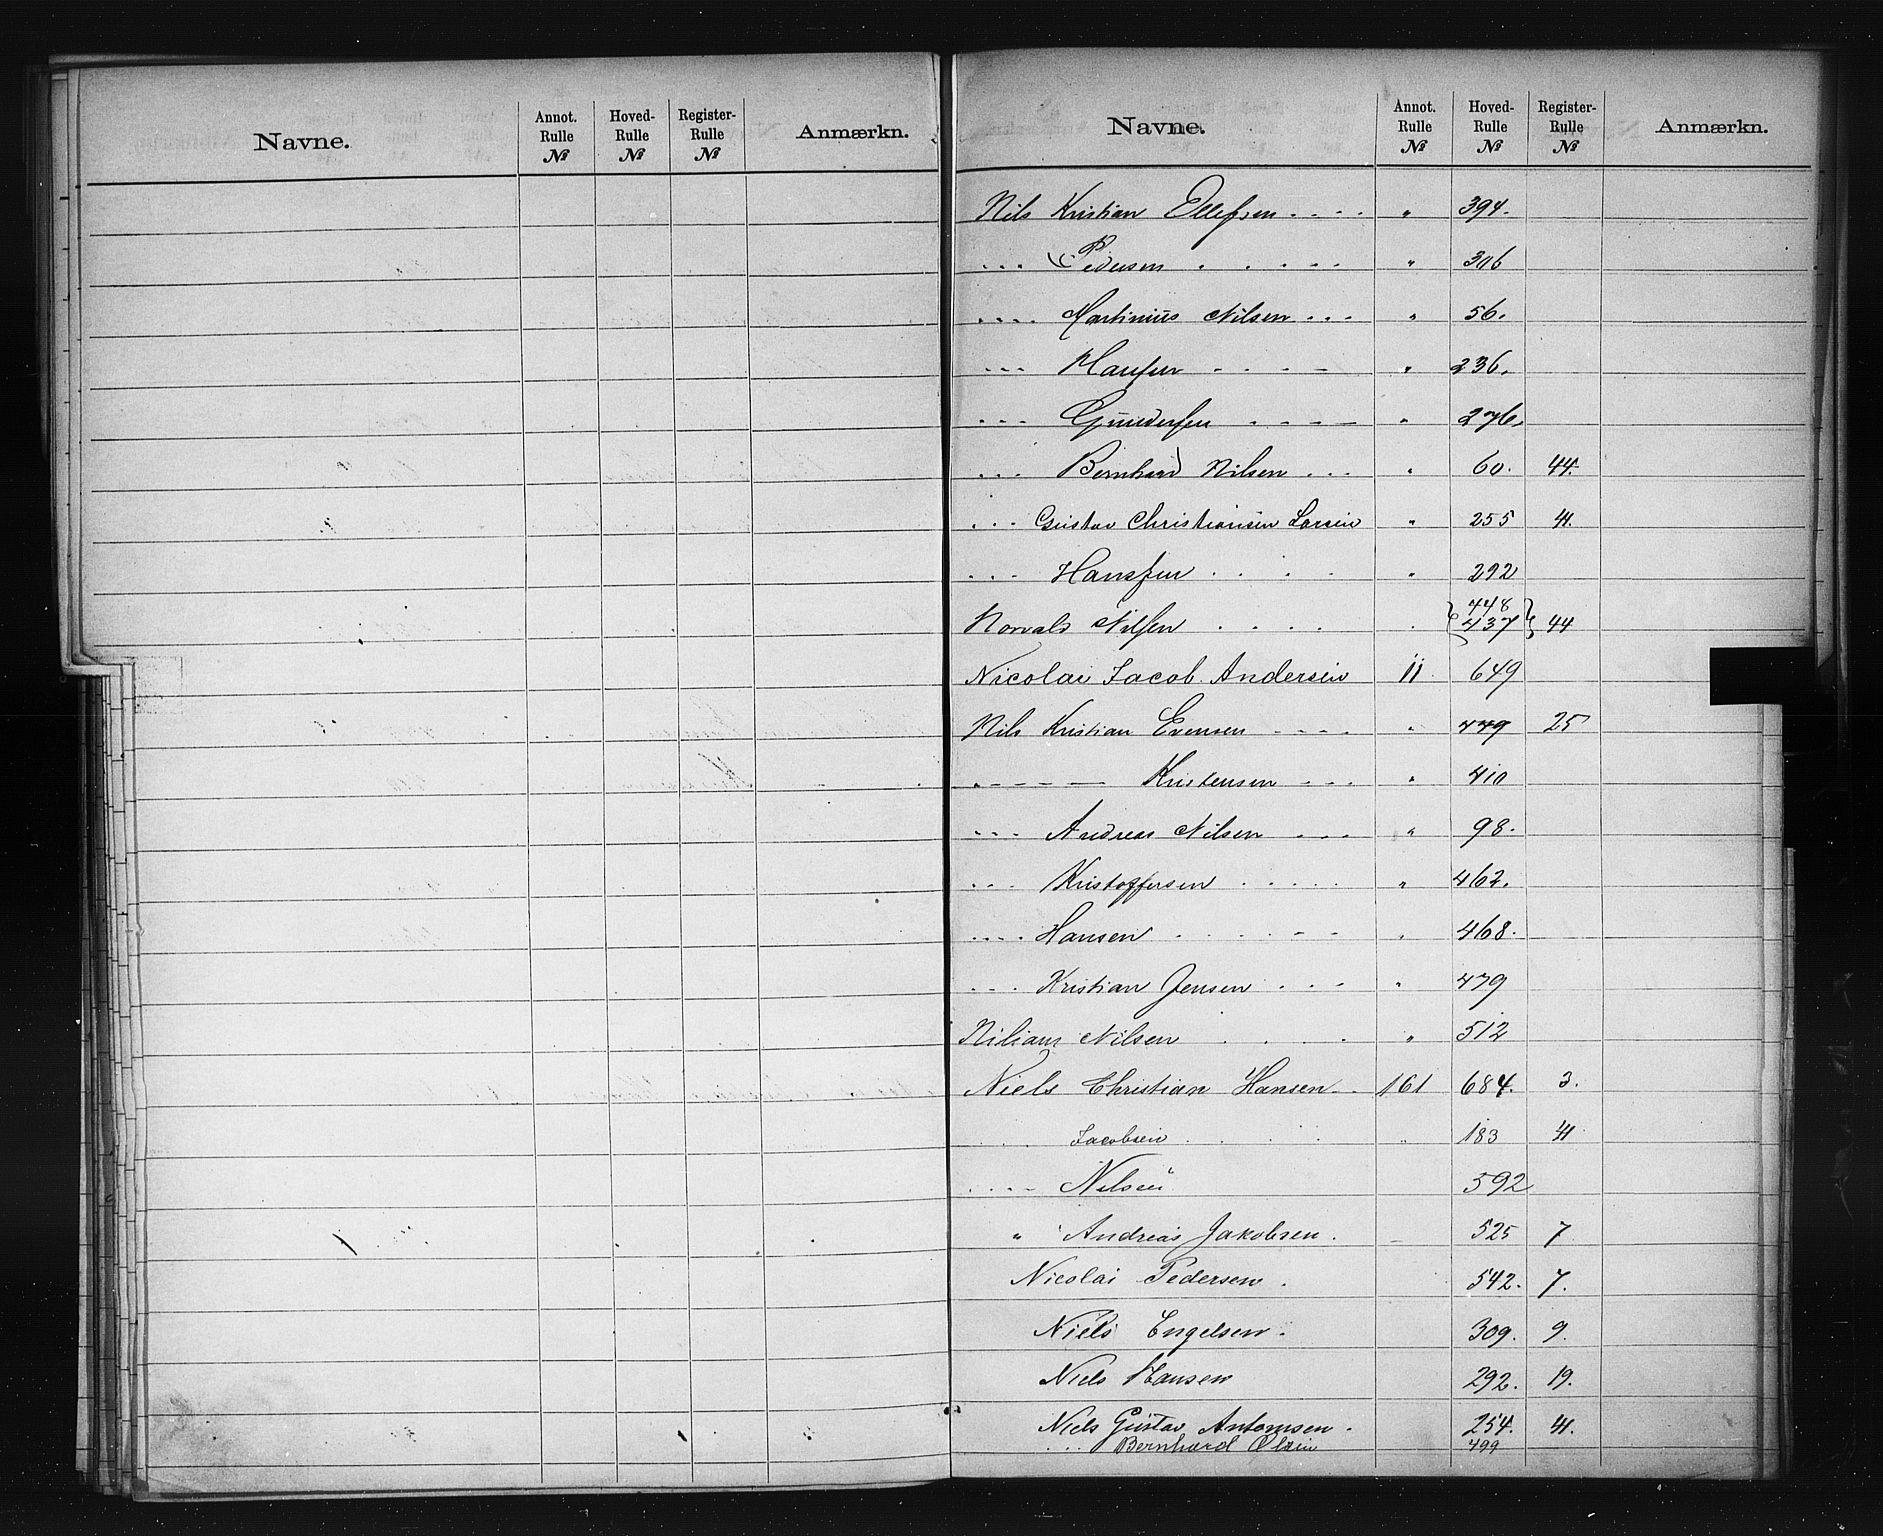 Navne. Annot. Rulle № Hoved-Rulle № Register-Rulle № Anmærkn.
Navne. Annot. Rulle № Hoved-Rulle № Register-Rulle № Anmærkn.
Nils Kristian Ellefsen . . . . " 394.
. . . Pedersen . . . . . " 306
. . . . Martinius Nilsen . . . " 56.
. . . Hansen . . . - " 236.
. . . Gundersen . - - - - " 276.
. . . Bernhard Nilsen . . . " 60. 44.
. . . Gustav Christiansen Larsen " 255 41.
. . . Hansen . . . . " 292
Norvald Nilsen . . . . . { 448
437 } 44
Nicolai Jacob Andersen 11 649
Nils Kristian Evensen - - - . " 449 25
. - - - - Kristensen - - . " 410
. . . Andreas Nilsen . . . " 98.
. . . Kristoffersen . . . . . " 462.
. . . . Hansen . . . . - - " 468.
. . . Kristian Jensen . . . " 479
Niliam Nilsen . . . . " 512
Niels Christian Hansen . . 161 684. 3.
. . Jacobsen . . . . " 183 41
. . . - Nilsen 592
" " Andreas Jakobsen . 525 7
Nicolai Pedersen . 542. 7.
Niels Engelsen . 309. 9.
Niels Hansen 292. 19.
Niels Gustav Antonsen . 254. 41.
. . . Bernhard Olsen 499